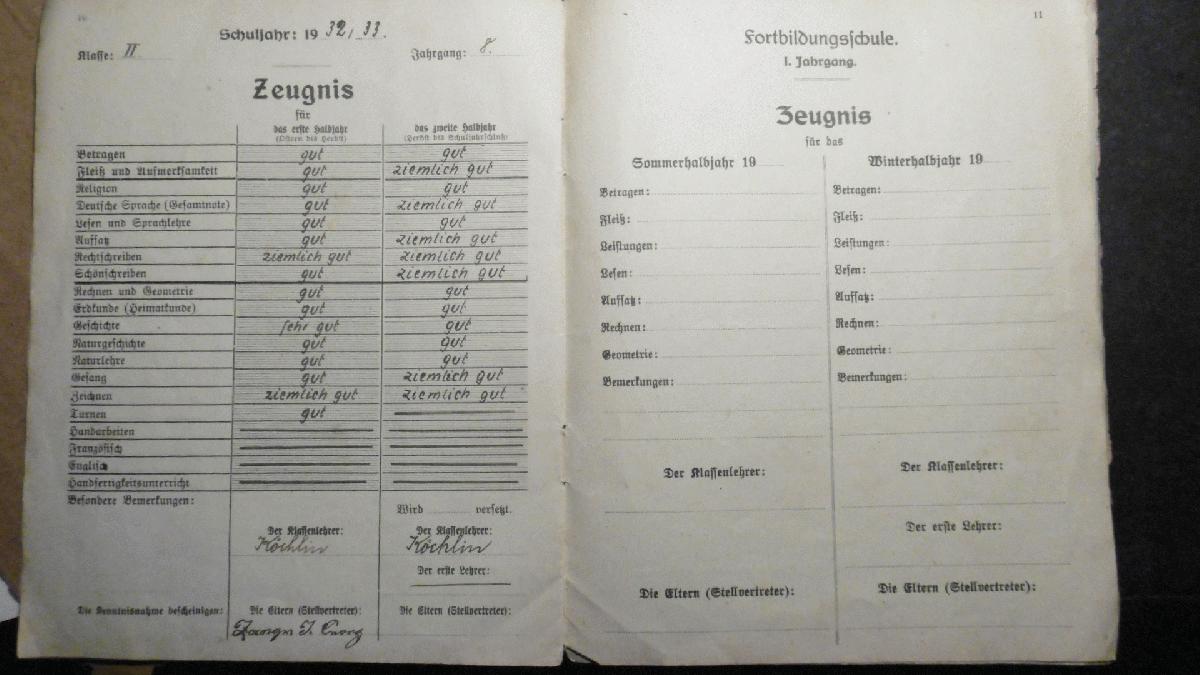 Schuljahr: 19 32/33.
Klasse: II Jahrgang: 8.
Zeugnis
für
das erste Halbjahr das zweite Halbjahr
(Ostern bis Herbst) (Herbst bis Schuljahrschluß)
Betragen gut gut
Fleiß und Aufmerksamkeit gut ziemlich gut
Religion gut gut
Deutsche Sprache (Gesamtnote) gut ziemlich gut
Lesen und Sprachlehre gut gut
Aufsatz gut ziemlich gut
Rechtschreiben ziemlich gut ziemlich gut
Schönschreiben gut ziemlich gut
Rechnen und Geometrie gut gut
Erdkunde (Heimatkunde) gut gut
Geschichte sehr gut gut
Naturgeschichte gut gut
Naturlehre gut gut
Gesang gut ziemlich gut
Zeichnen ziemlich gut ziemlich gut
Turnen gut
Handarbeiten
Französisch
Englisch
Handfertigkeitsunterricht
Besondere Bemerkungen:
Wird versetzt.
Der Klassenlehrer: Der Klassenlehrer:
Köchlin Köchlin
Der erste Lehrer:
Die Kenntnisnahme bescheinigen: Die Eltern (Stellvertreter): Die Eltern (Stellvertreter):
11
Fortbildungsschule.
I. Jahrgang.
Zeugnis
für das
Sommerhalbjahr 19 Winterhalbjahr 19
Betragen: Betragen:
Fleiß: Fleiß:
Leistungen: Leistungen:
Lesen: Lesen:
Aufsatz: Aufsatz:
Rechnen: Rechnen:
Geometrie: Geometrie:
Bemerkungen: Bemerkungen:
Der Klassenlehrer: Der Klassenlehrer:
Der erste Lehrer:
Die Eltern (Stellvertreter): Die Eltern (Stellvertreter):